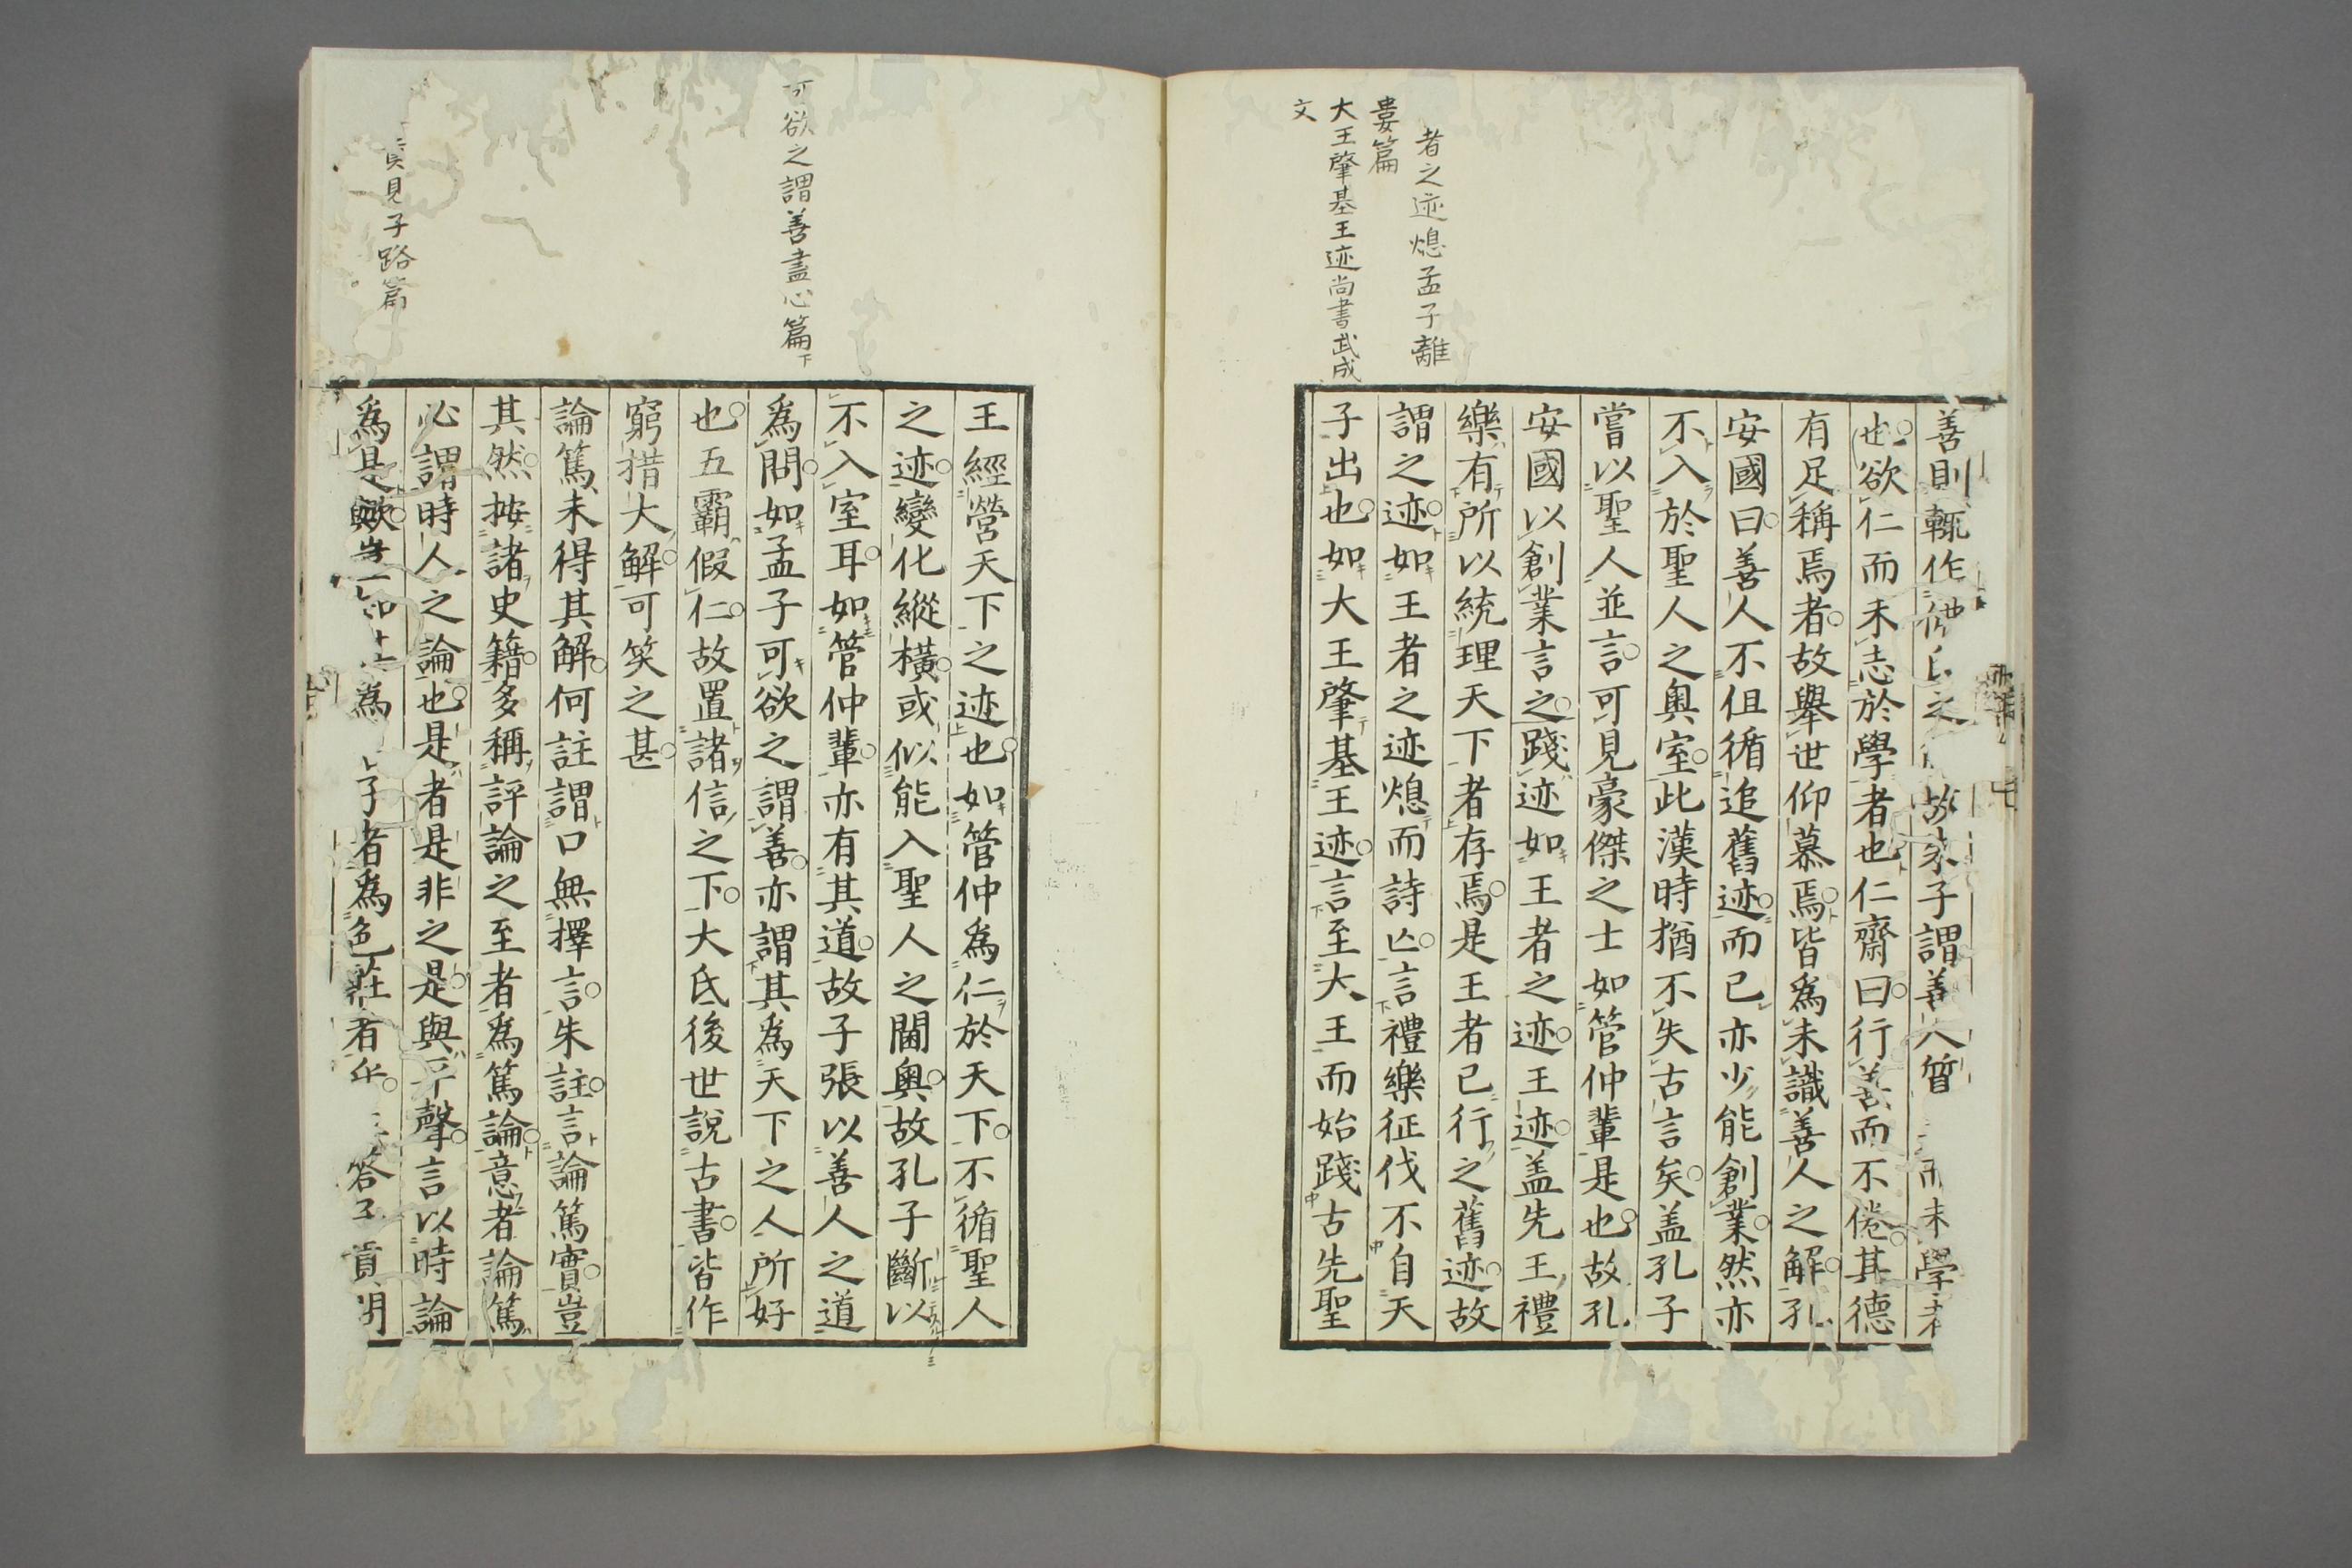 者之迹熄孟子離
婁篇
大王肇基王迹尚書武成
文
善則輒作佛氏之故朱子謂善人質而未學者
也欲仁而未志於學者也仁齋曰行善而不倦其德
有足稱焉者故舉世仰慕焉皆爲未識善人之解孔
安國曰善人不但循追舊迹而已亦少能創業然亦
不入於聖人之奧室此漢時猶不失古言矣盖孔子
嘗以聖人並言可見豪傑之士如管仲輩是也故孔
安國以創業言之踐迹如王者之迹王迹盖先王禮
樂有所以統理天下者存焉是王者已行之舊迹故
謂之迹如王者之迹熄而詩亾言禮樂征伐不自天
子出也如大王肇基王迹言至大王而始踐古先聖
可欲之謂善盡心篇下
貢見子路篇
王經營天下之迹也如管仲爲仁於天下不循聖人
之迹變化縱橫或似能入聖人之閫奧故孔子斷以
不入室耳如管仲輩亦有其道故子張以善人之道
爲問如孟子可欲之謂善亦謂其爲天下之人所好
也五霸假仁故置諸信之下大氐後世說古書皆作
窮措大解可笑之甚
論篤未得其解何註謂口無擇言朱註言論篤實豈
其然按諸史籍多稱評論之至者爲篤論意者論篤
必謂時人之論也是者是非之是與平聲言以時論
爲是歟豈子者爲色莊者乎答子貢問